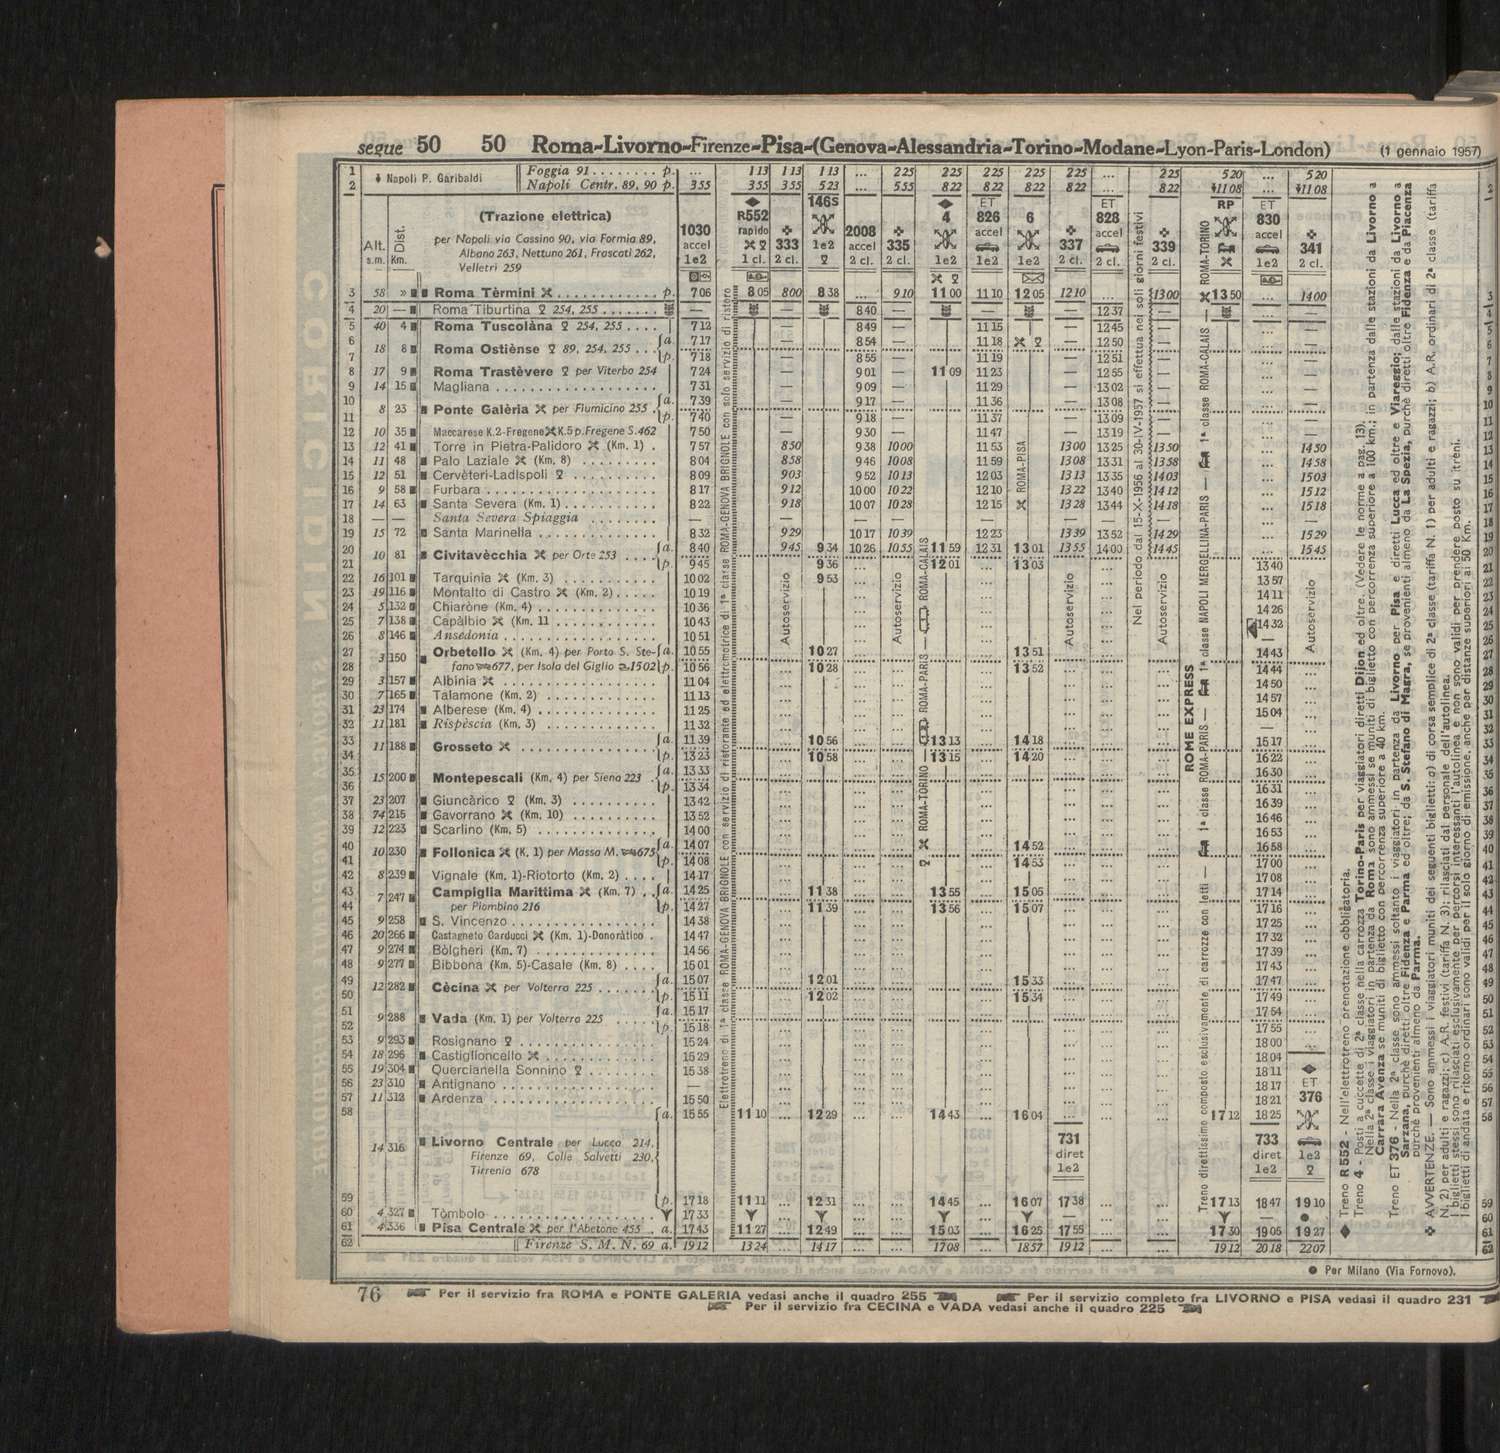 segue 50 50 Roma-Livorno-Firenze-Pisa-(Genova-Alessandria-Torino-Modane-Lyon-Paris-London) (1 gennaio 1957)
1 Napoli P. Garibaldi Foggia 91 ........ p. ... 1 13 1 13 1 13 ... 2 25 2 25 2 25 2 25 2 25 ... 2 25 5 20 ... 5 20
2 Napoli Centr. 89, 90 p. 3 55 3 55 3 55 5 23 ... 5 55 8 22 8 22 8 22 8 22 ... 8 22 11 08 ... 11 08
Alt. s.m. Dist. Km.
(Trazione elettrica)
per Napoli via Cassino 90, via Formia 89,
Albano 263, Nettuno 261, Frascati 262,
Velletri 259
1030 accel 1e2
R552 rapido 1 cl.
333 2 cl.
146S 1e2
2008 accel 2 cl.
335 2 cl.
4 1e2
ET 826 accel 1e2
6 1e2
337 2 cl.
ET 828 accel 1e2
339 2 cl.
RP
ET 830 accel 1e2
341 2 cl.
3 58 » Roma Tèrmini ............ p. 7 06 8 05 8 00 8 38 ... 9 10 11 00 11 10 12 05 12 10 ... 13 00 13 50 ... 14 00
4 20 — Roma Tiburtina 254, 255 ....... — 8 40 — — — — 12 37
5 40 4 Roma Tuscolàna 254, 255 .... 7 12 — — 8 49 — 11 15 — 12 45
6 18 8 Roma Ostiènse 89, 254, 255 ... a. 7 17 — — 8 54 — 11 18 — 12 50
7 p. 7 18 — — 8 55 — 11 19 — 12 51
8 17 9 Roma Trastèvere per Viterbo 254 7 24 — — 9 01 — 11 09 11 23 — 12 55
9 14 15 Magliana .................... 7 31 — — 9 09 — 11 29 — 13 02
10 8 23 Ponte Galèria per Fiumicino 255 . a. 7 39 — — 9 17 — 11 36 — 13 08
11 p. 7 40 — — 9 18 — 11 37 — 13 09
12 10 35 Maccarese K.2-Fregene K.5 p. Fregene S. 462 7 50 — — 9 30 — 11 47 — 13 19
13 12 41 Torre in Pietra-Palidoro (Km. 1) . 7 57 8 50 9 38 10 00 11 53 13 00 13 25 13 50 ... 14 50
14 11 48 Palo Laziale (Km. 8) ......... 8 04 8 58 9 46 10 08 11 59 13 08 13 31 13 58 ... 14 58
15 12 51 Cervèteri-Ladìspoli .......... 8 09 9 03 9 52 10 13 12 03 13 13 13 35 14 03 ... 15 03
16 9 58 Furbara ..................... 8 17 9 12 10 00 10 22 12 10 13 22 13 40 14 12 ... 15 12
17 14 63 Santa Severa (Km. 1) ........... 8 22 9 18 10 07 10 28 12 15 13 28 13 44 14 18 ... 15 18
18 — — Santa Severa Spiaggia ........ — — — — — — — — ... —
19 15 72 Santa Marinella ............... 8 32 9 29 10 17 10 39 12 23 13 39 13 52 14 29 ... 15 29
20 10 81 Civitavècchia per Orte 253 .... a. 8 40 9 45 9 34 10 26 10 55 11 59 12 31 13 01 13 55 14 00 14 45 ... 15 45
21 p. 9 45 9 36 12 01 13 03 13 40
22 16 101 Tarquinia (Km. 3) ........... 10 02 9 53 13 57
23 19 116 Montalto di Castro (Km. 2) ..... 10 19 14 11
24 3 132 Chiaròne (Km. 4) ............. 10 36 14 26
25 7 138 Capàlbio (Km. 11 ............ 10 43 14 32
26 8 146 Ansedonia .................. 10 51 —
27 3 150 Orbetello (Km. 4) per Porto S. Ste- a. 10 55 10 27 13 51 14 43
28 fano 677, per Isola del Giglio 1502 p. 10 56 10 28 13 52 14 44
29 3 157 Albinia ..................... 11 04 14 50
30 7 165 Talamone (Km. 2) .............. 11 13 14 57
31 23 174 Alberese (Km. 4) .............. 11 25 15 04
32 11 181 Rispèscia (Km. 3) ............. 11 32 —
33 11 188 Grosseto ................. a. 11 39 10 56 13 13 14 18 15 17
34 p. 13 23 10 58 13 15 14 20 16 22
35 15 200 Montepescali (Km. 4) per Siena 223 . a. 13 33 16 30
36 p. 13 34 16 31
37 23 207 Giuncàrico (Km. 3) .......... 13 42 16 39
38 74 215 Gavorrano (Km. 10) ........... 13 52 16 46
39 12 223 Scarlino (Km. 5) .............. 14 00 16 53
40 10 230 Follonica (K. 1) per Massa M. 675 a. 14 07 14 52 16 58
41 p. 14 08 14 53 17 00
42 8 239 Vignale (Km. 1)-Riotorto (Km. 2) .... 14 17 17 08
43 7 247 Campiglia Marittima (Km. 7) . a. 14 25 11 38 13 55 15 05 17 14
44 per Piombino 216 p. 14 27 11 39 13 56 15 07 17 16
45 9 258 S. Vincenzo .................. 14 38 17 25
46 20 266 Castagneto Carducci (Km. 1)-Donoràtico . 14 47 17 32
47 9 274 Bòlgheri (Km. 7) .............. 14 56 17 39
48 9 277 Bibbona (Km. 5)-Casale (Km. 8) .... 15 01 17 43
49 12 282 Cècina per Volterra 225 ....... a. 15 07 12 01 15 33 17 47
50 p. 15 11 12 02 15 34 17 49
51 9 288 Vada (Km. 1) per Volterra 225 .... a. 15 17 17 54
52 p. 15 18 17 55
53 9 293 Rosignano ................... 15 24 18 00
54 18 296 Castiglioncello ............... 15 29 18 04
55 19 304 Quercianella Sonnino .......... 15 38 18 11
56 23 310 Antignano ................... — 18 17
57 11 312 Ardenza .................... 15 50 18 21
58 14 316 Livorno Centrale per Lucca 214, a. 15 55 11 10 12 29 14 43 16 04 17 12 18 25
Firenze 69, Colle Salvetti 230,
Tirrenia 678
731 diret 1e2
733 diret 1e2
ET 376 1e2
59 p. 17 18 11 11 12 31 14 45 16 07 17 38 17 13 18 47 19 10
60 4 327 Tòmbolo ................... 17 33 —
61 4 336 Pisa Centrale per l'Abetone 455 .. a. 17 43 11 27 12 49 15 03 16 25 17 55 17 30 19 05 19 27
62 Firenze S. M. N. 69 a. 19 12 13 24 ... 14 17 ... ... 17 08 ... 18 57 19 12 ... ... 19 12 20 18 22 07
Elettrotreno di 1ª classe ROMA-GENOVA BRIGNOLE con servizio di ristorante ed elettromotrice di 1ª classe ROMA-GENOVA BRIGNOLE con solo servizio di ristoro
Autoservizio
Autoservizio
ROMA-TORINO — ROMA-PARIS — ROMA-CALAIS
ROMA-PISA
Autoservizio
Nel periodo dal 15-X-1956 al 30-IV-1957 si effettua nei soli giorni festivi
Autoservizio
ROME EXPRESS
Treno direttissimo composto esclusivamente di carrozze con letti — 1ª classe ROMA-PARIS — 1ª classe NAPOLI MERGELLINA-PARIS — 1ª classe ROMA-CALAIS — ROMA-TORINO
Autoservizio
Treno R 552 - Nell'elettrotreno prenotazione obbligatoria.
Treno 4 - Posti a cuccette di 2ª classe nella carrozza Torino-Paris per viaggiatori diretti Dijon ed oltre. (Vedere le norme a pag. 13).
Nella 2ª classe i viaggiatori in partenza da Roma sono ammessi se muniti di biglietto con percorrenza superiore a 100 km.; in partenza dalle stazioni da Livorno a
Carrara Avenza se muniti di biglietto con percorrenza superiore a 40 km.
Treno ET 376 - Nella 2ª classe sono ammessi soltanto i viaggiatori in partenza da Livorno per Pisa e diretti Lucca ed oltre e Viareggio; dalle stazioni da Livorno a
Sarzana, purchè diretti oltre Fidenza e Parma ed oltre; da S. Stefano di Magra, se provenienti almeno da La Spezia, purchè diretti oltre Fidenza e da Piacenza
purchè provenienti almeno da Parma.
AVVERTENZE. — Sono ammessi i viaggiatori muniti dei seguenti biglietti: a) di corsa semplice di 2ª classe (tariffa N. 1) per adulti e ragazzi; b) A.R. ordinari di 2ª classe (tariffa
N. 2) per adulti e ragazzi; c) A.R. festivi (tariffa N. 3); rilasciati dal personale dell'autolinea.
I biglietti stessi sono rilasciati esclusivamente per percorsi interessanti l'autolinea e non sono validi per prendere posto su treni.
I biglietti di andata e ritorno ordinari sono validi per il solo giorno di emissione, anche per distanze superiori ai 50 Km.
● Per Milano (Via Fornovo).
76 Per il servizio fra ROMA e PONTE GALERIA vedasi anche il quadro 255 Per il servizio completo fra LIVORNO e PISA vedasi il quadro 231
Per il servizio fra CECINA e VADA vedasi anche il quadro 225